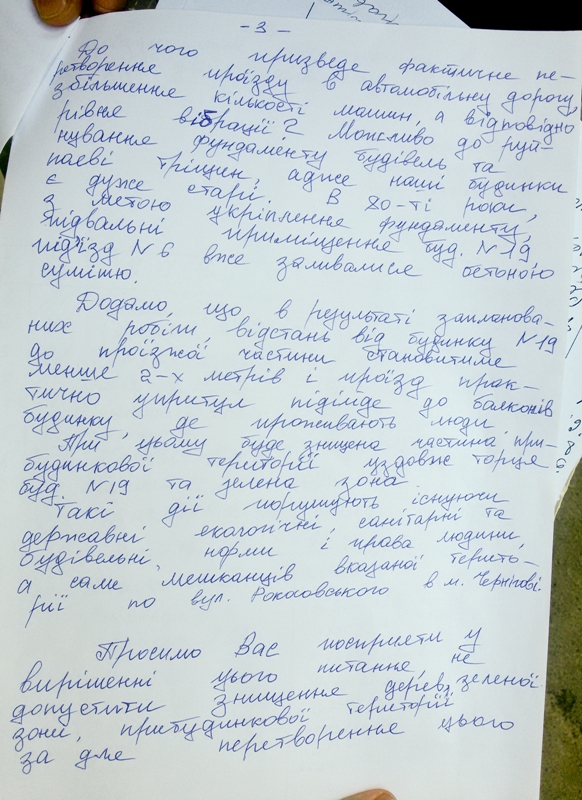 - 3 -
До чого призведе фактичне пе-
ретворення проїзду в автомобільну дорогу,
збільшення кількості машин, а відповідно
рівня вібрації? Можливо до руй-
нування фундаменту будівель та
появі тріщин, адже наші будинки
є дуже старі. В 80-ті роки,
з метою укріплення фундаменту,
підвальні приміщення буд. N 19
під'їзд N 6 вже заливалися бетоною
сумішю.
Додамо, що в результаті запланова-
них робіт, відстань від будинку N19
до проїзжої частини становитиме
менше 2-х метрів і проїзд прак-
тично упритул підійде до балконів
будинку, де проживають люди.
При цьому буде знищена частина при-
будинкової території уздовж торця
буд. N19 та зелена зона
Такі дії порушують існуючи
державні екологічні, санітарні та
будівельні норми і права людини,
а саме мешканців вказаної терито-
рії по вул. Рокосовського в м. Чернігові.
Просимо Вас посприяти у
вирішенні цього питання, не
допустити знищення дерев, зеленої
зони, прибудинкової території
за для перетворення цього